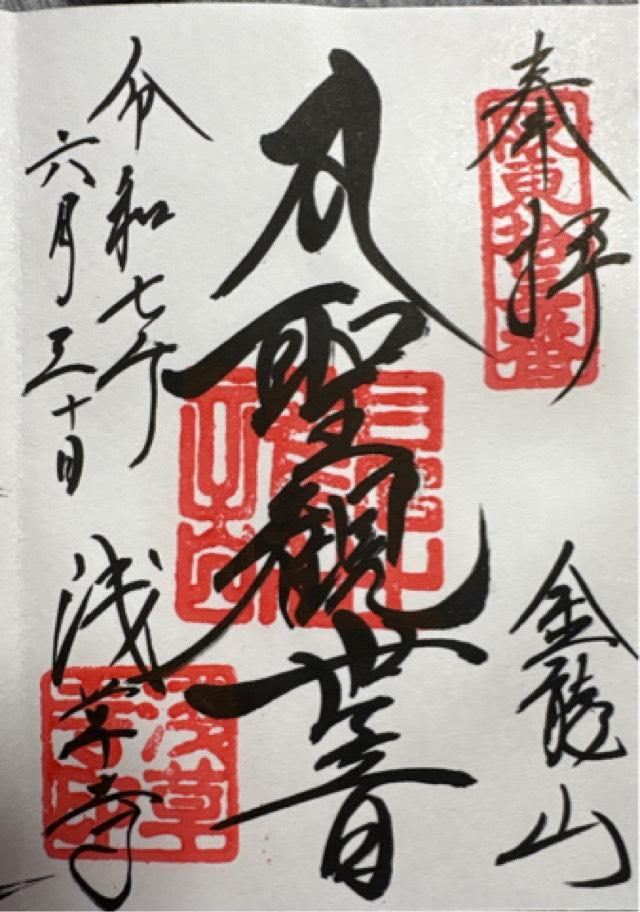 奉拝
坂東拾三番
金龍山
聖観世音
令和七年
六月三十日
浅草寺
浅草寺印